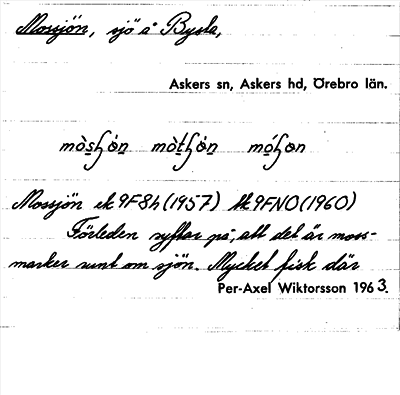 Mossjön, sjö å Bysta,
Askers sn, Askers hd, Örebro län.
Mossjön ek 9F8h (1957) tk 9FNO (1960)
Förleden syftar på, att det är moss-
marker runt om sjön. Mycket fisk där
Per-Axel Wiktorsson 1963.